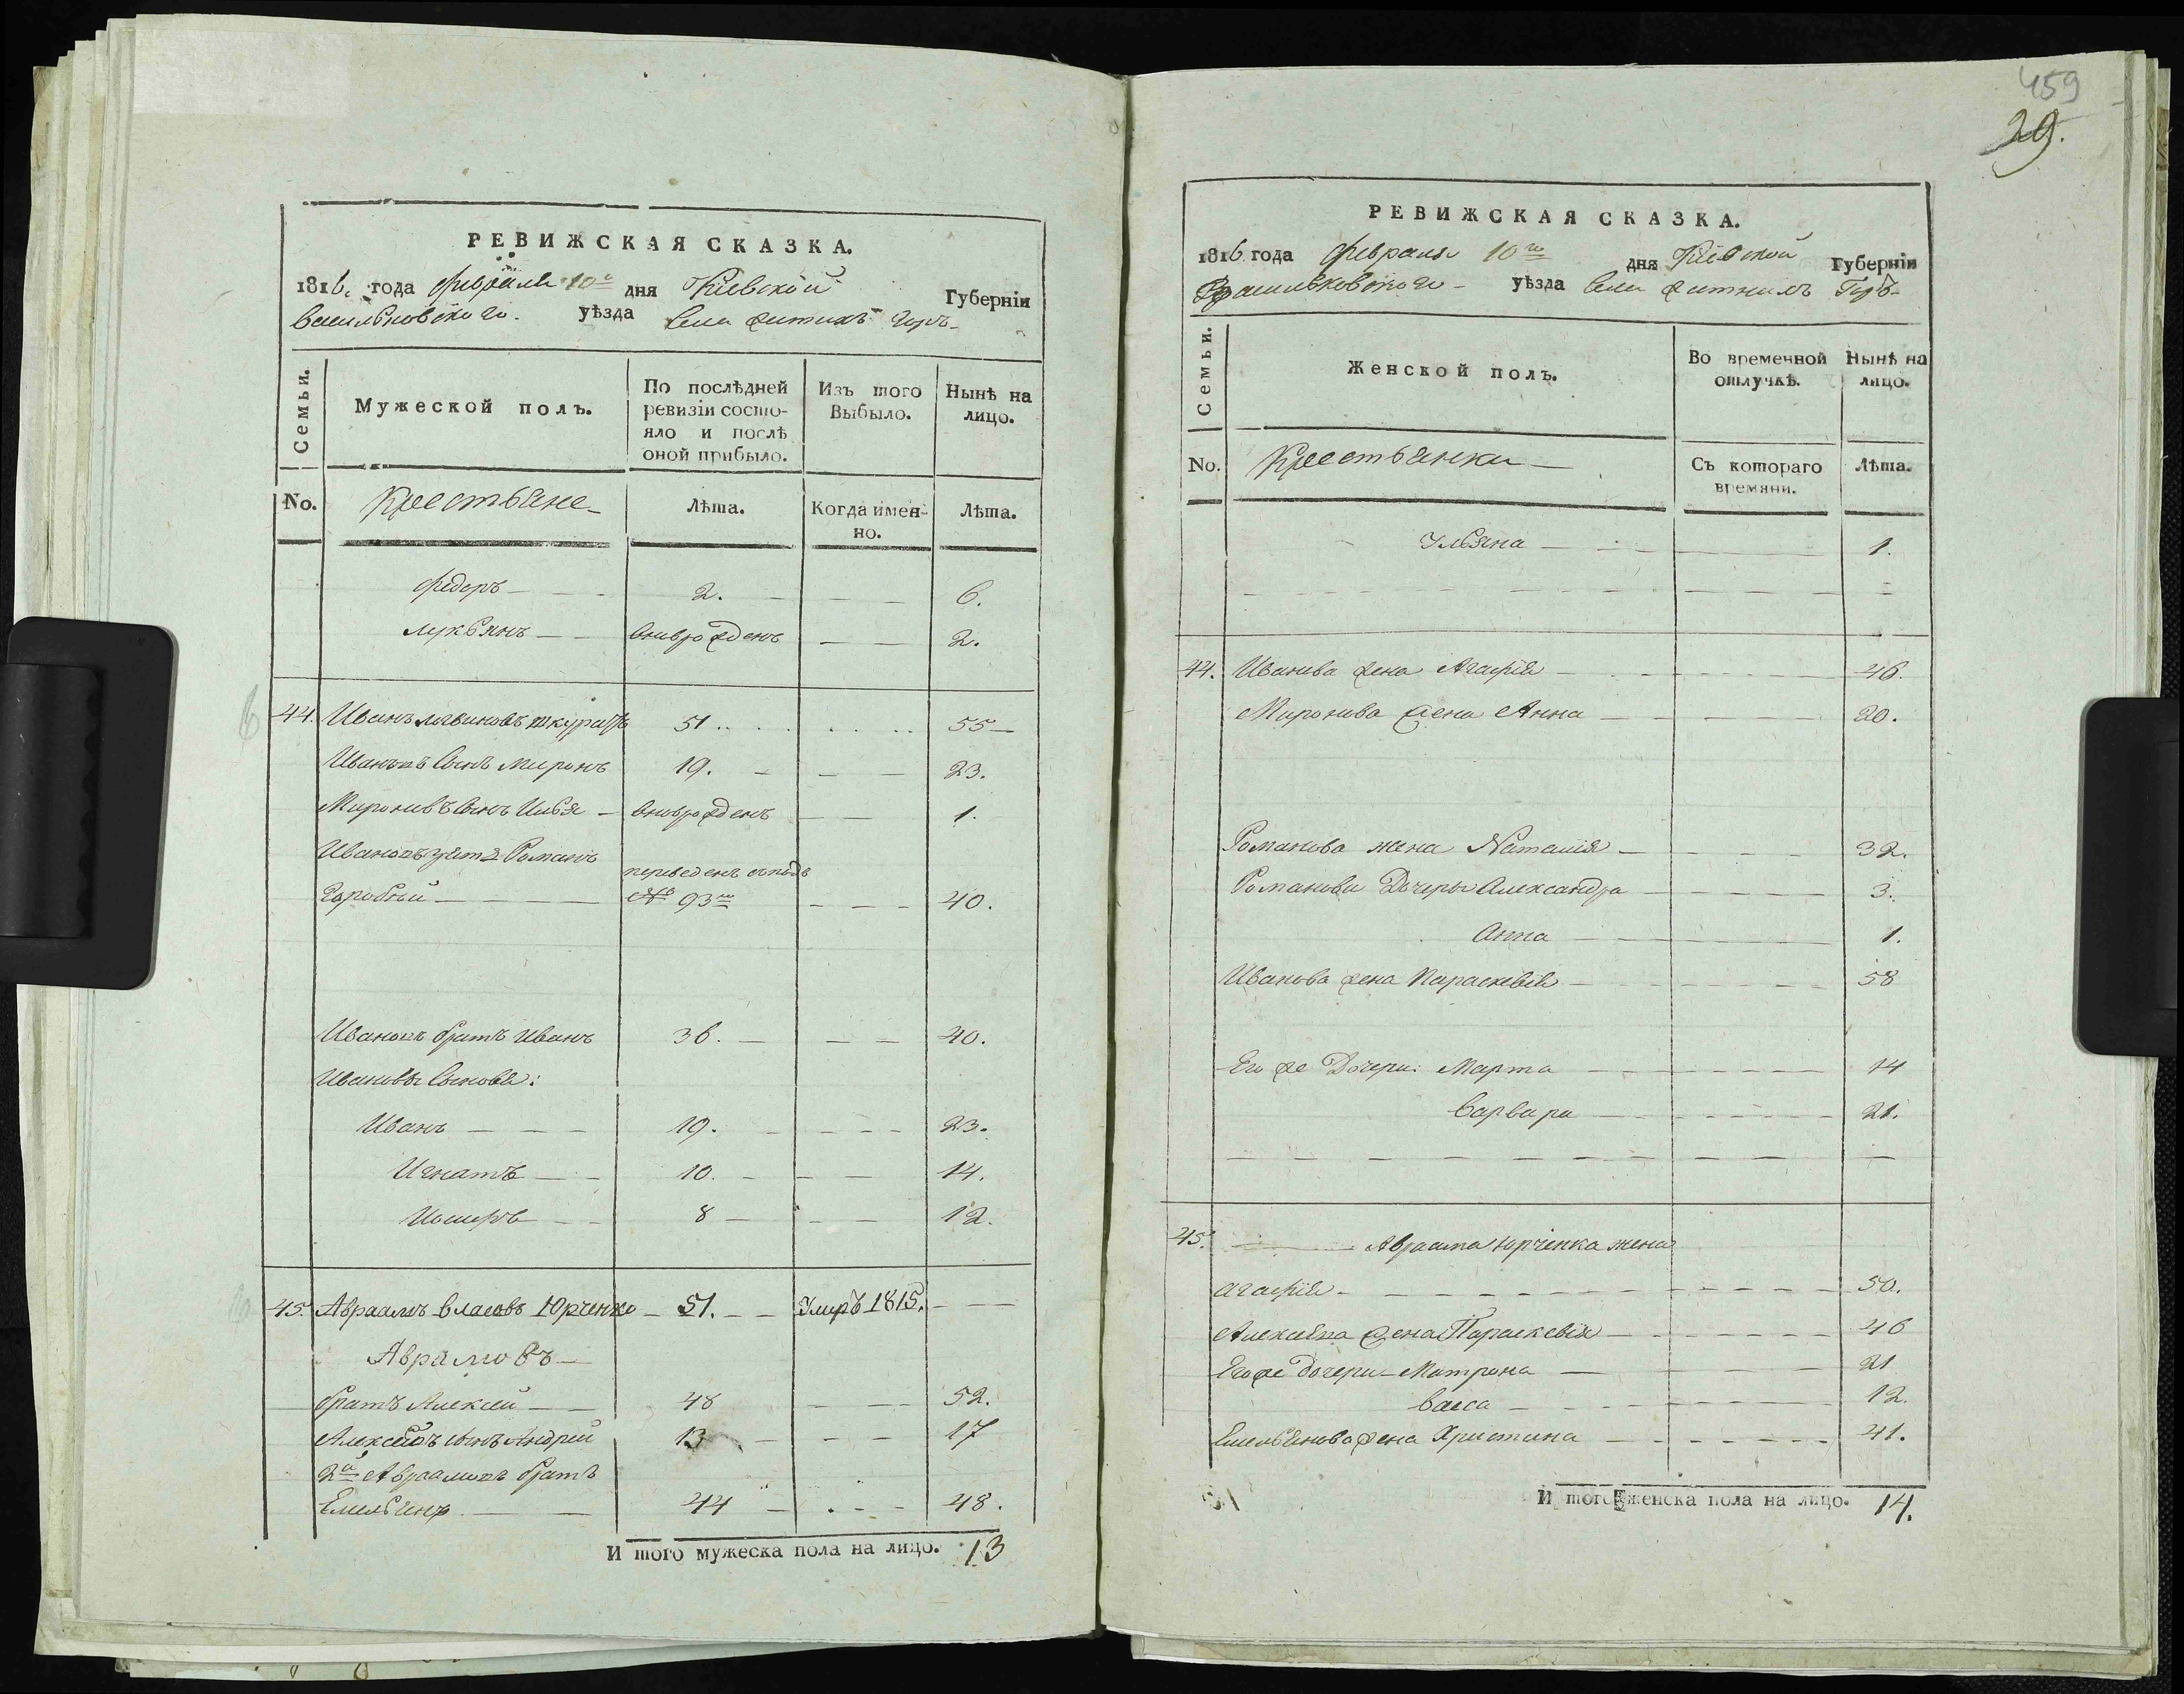 РЕВИЖСКАЯ СКАЗКА.
1816. года февраля 10 дня Кіевской Губерніи
Васильковского. уѣзда Села Житнихъ Горъ-
Семьи.
Мужеской полъ.
По послѣдней ревизіи состояло и послѣ оной прибыло.
Изъ того Выбыло.
Нынѣ на лицо.
No. Крестьяне
Лѣта.
Когда именно.
Лѣта.
Федоръ 2. 6.
Лукьянъ вновь рожденъ 2.
44. Иванъ 51 55
Ивановъ Сынъ Миронъ 19. 23.
Мироновъ Сынъ Илья вновь рожденъ 1.
Ивановъ зять 2 Романъ
переведенъ съ подъ
№ 93го 40.
Ивановъ братъ Иванъ 36. 40.
Ивановы Сыновья:
Иванъ 19. 23.
Игнатъ 10. 14.
Иосифъ 8 12.
45. Авраамъ Власовъ Юрченко 51. Умръ 1815.
Аврамовъ
братъ Алексей 48 52.
Алексеевъ сынъ Андрей 13 17
2й Авраамовъ братъ
Емельянъ 44 48.
И того мужеска пола на лицо. 13
459
29.
РЕВИЖСКАЯ СКАЗКА.
1816 года Февраля 10го дня Кіевской Губерніи
Васильковского уѣзда Села Житнихъ Горъ-
Семьи.
Женской полъ.
Во временной отлучкѣ.
Нынѣ на лицо.
No. Крестьянки
Съ котораго времяни.
Лѣта.
Ульяна 1.
44. Иванова жена Агафія 46.
Миронова жена Анна 20.
Романова жена Наталия 32.
Романовы Дочеры Александра 3.
Анна 1.
Иванова жена Параскевія 58
Его же Дочери: Марта 14
Варвара 21.
45. Авраама Юрченка жена
агафія 50.
Алексеева жена Параскевія 46
Его же дочери Матрона 21
Васса 12.
Емельянова жена Христина 41.
И того женска пола на лицо. 14.